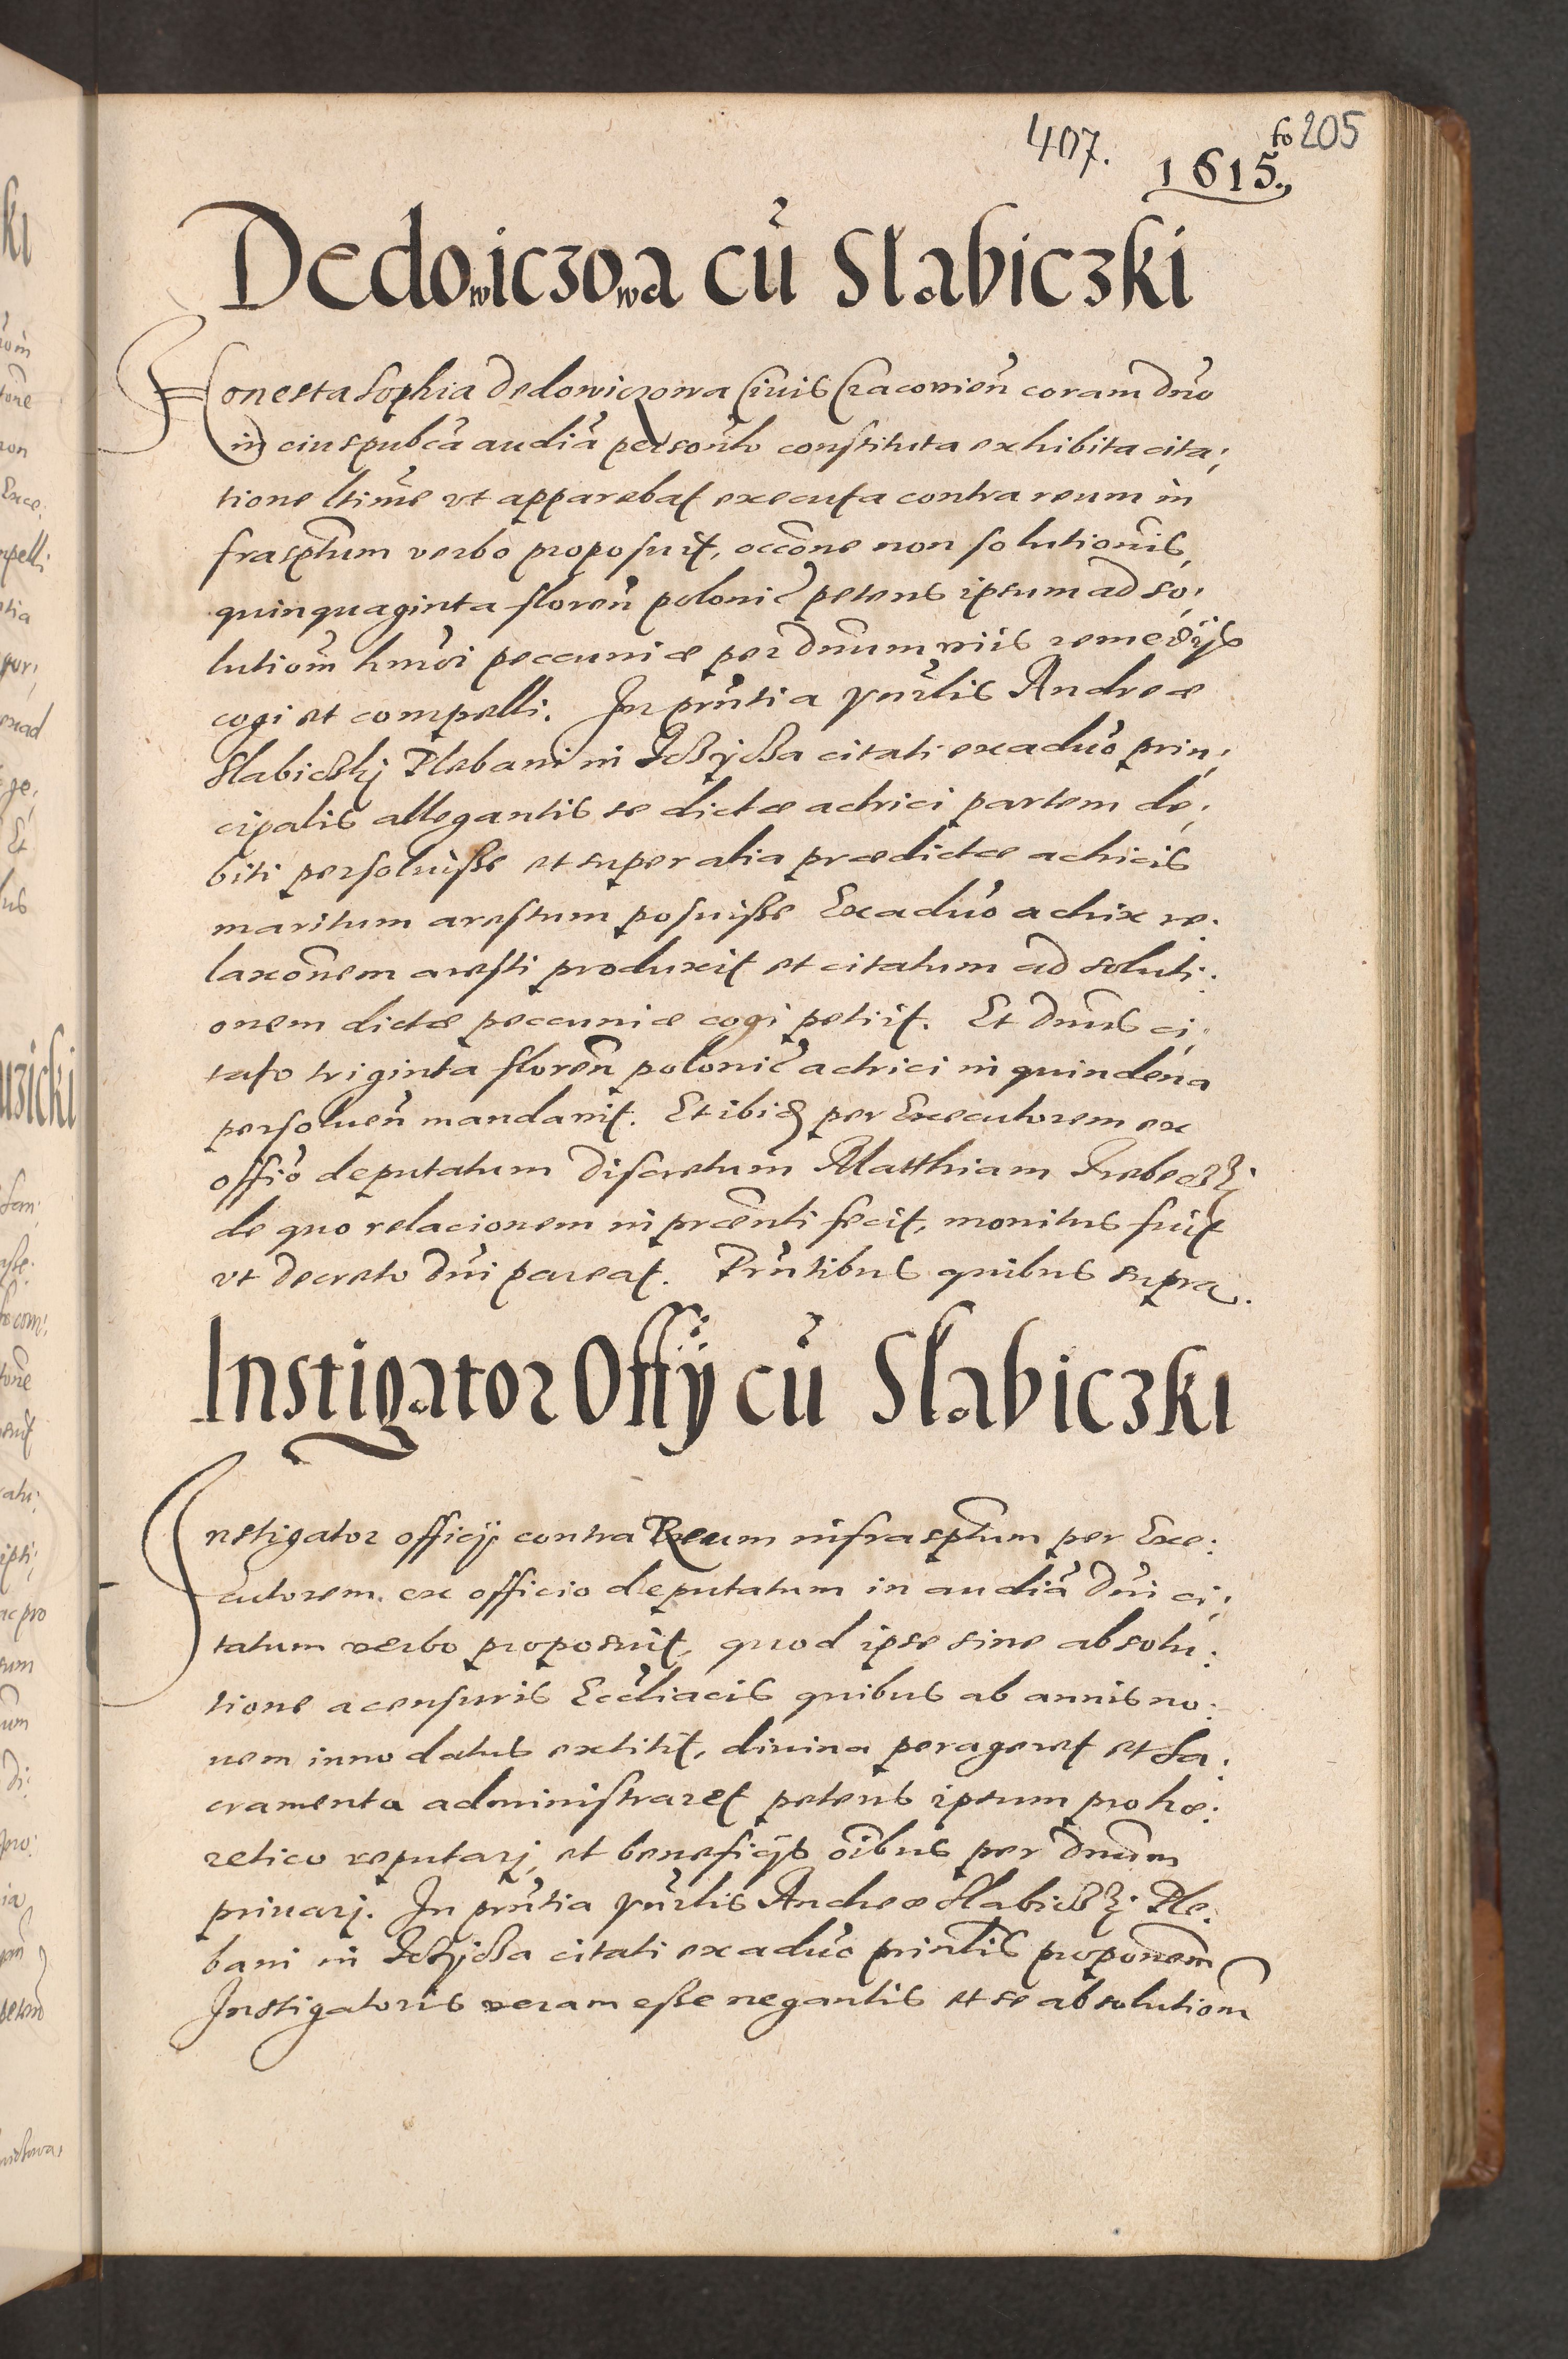 407. fo 205
1615.
Dedowiczowa cũ Słabiczki
Honesta Sophia Dedowiczowa Civis Cracovień coram Dńo
in eius pubca audia persońlr constituta exhibita cita;
tione ltime vt apparebat executa contra reum in
frasptum verbo proposuit, occone non solutionis
quinquaginta floreń polonic petens ipsum ad so;
lutiom hmoi peccuniæ per Dnum viis remedijs
cogi et compelli. In pntia vnrlis Andreæ
Slabiczki Plebani in citati ex aduo prin;
cipalis allegantis se dictæ actrici partem de;
biti persoluisse et super alia prædictæ actricis
maritum arestum posuisse Ex aduo actrix re;
laxonem aresti produxit et citatum ad soluti;
onem dictæ peccuniæ cogi petiit. Et Dnus ci;
tato triginta floreń polonic actrici in quindena
persolueń mandauit. Et ibid per Executorem ex
offio deputatum Discretum Matthiam
de quo relacionem in præenti fecit, monitus fuit
vt decreto Dni pareat. Pńtibus quibus supra.
Instigator Offij cũ Słabiczki
Instigator officij contra Reum infrasptum per Exe;
cutorem ex officio deputatum in audia Dni ci;
tatum verbo proposuit, quod ipse sine absolu;
tione a censuris Eccliacis quibus ab annis no;
uem innodatus extitit, diuina perageret et Sa;
cramenta administraret petens ipsum pro hæ;
retico reputarj, et beneficijs oibus per Dnum
priuarj. In pntia vnrlis Andreæ Slabiczki Ple;
bani in citati ex aduo prinlis proponem
Instigatoris veram esse negantis et se absolutiom